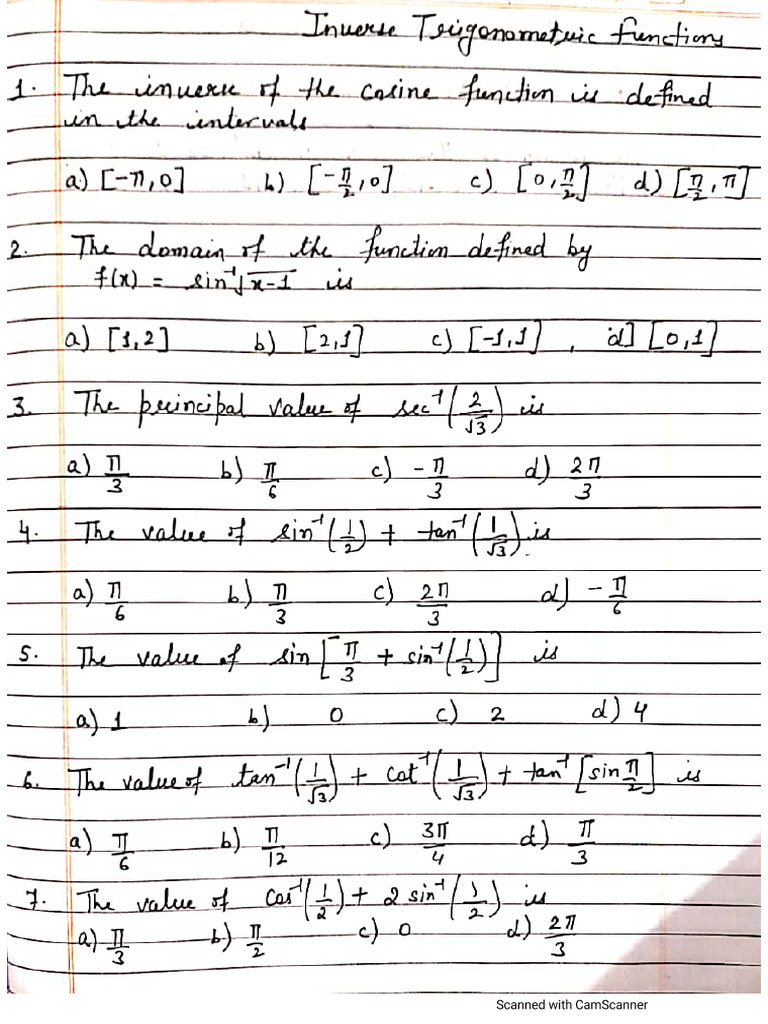 Inverse Trigonometric Functions
1. The inverse of the cosine function is defined
in the intervals
a) [-π,0] b) [-π/2,0] c) [0,π/2] d) [π/2,π]
2. The domain of the function defined by
f(x) = sin⁻¹√x-1 is
a) [1,2] b) [2,1] c) [-1,1], d] [0,1]
3. The principal value of sec⁻¹(2/√3) is
a) π/3 b) π/6 c) -π/3 d) 2π/3
4. The value of sin⁻¹(1/2) + tan⁻¹(1/√3) is
a) π/6 b) π/3 c) 2π/3 d) -π/6
5. The value of sin[π/3 + sin⁻¹(1/2)] is
a) 1 b) 0 c) 2 d) 4
6. The value of tan⁻¹(1/√3) + cot⁻¹(1/√3) + tan⁻¹[sin π/2] is
a) π/6 b) π/12 c) 3π/4 d) π/3
7. The value of cos⁻¹(1/2) + 2 sin⁻¹(1/2) is
a) π/3 b) π/2 c) 0 d) 2π/3
Scanned with CamScanner